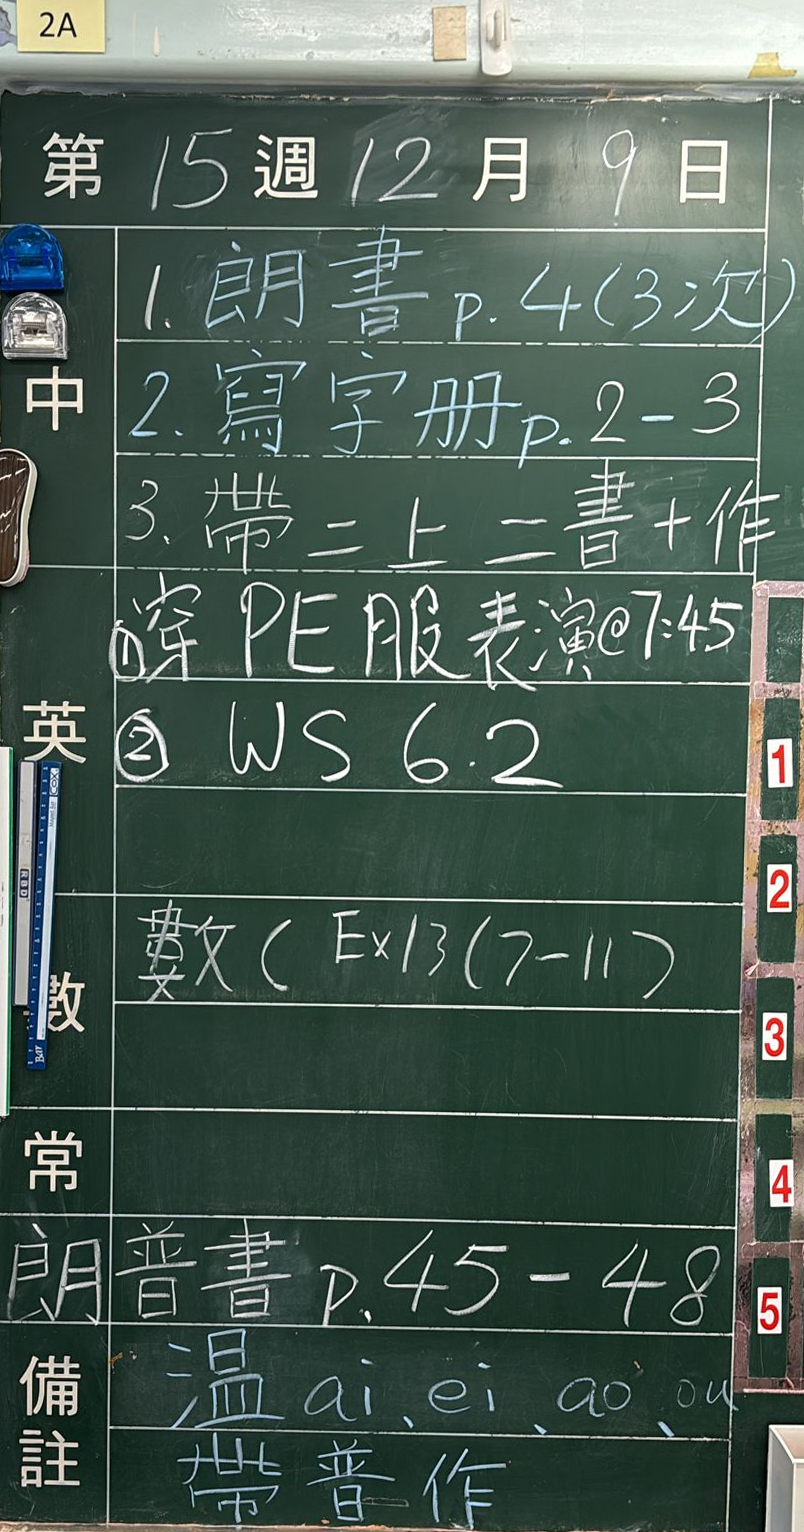 2A
第 15 週 12 月 9 日
中
1. 朗書 p. 4 (3次)
2. 寫字册 p. 2 - 3
3. 帶二上二書 + 作
英
① 穿 PE 服表演@7:45
② WS 6.2
數
數 ( Ex13 (7-11)
常
朗普書 p. 45 - 48
備註
温 ai、ei、ao、ou
帶普作
1
2
3
4
5